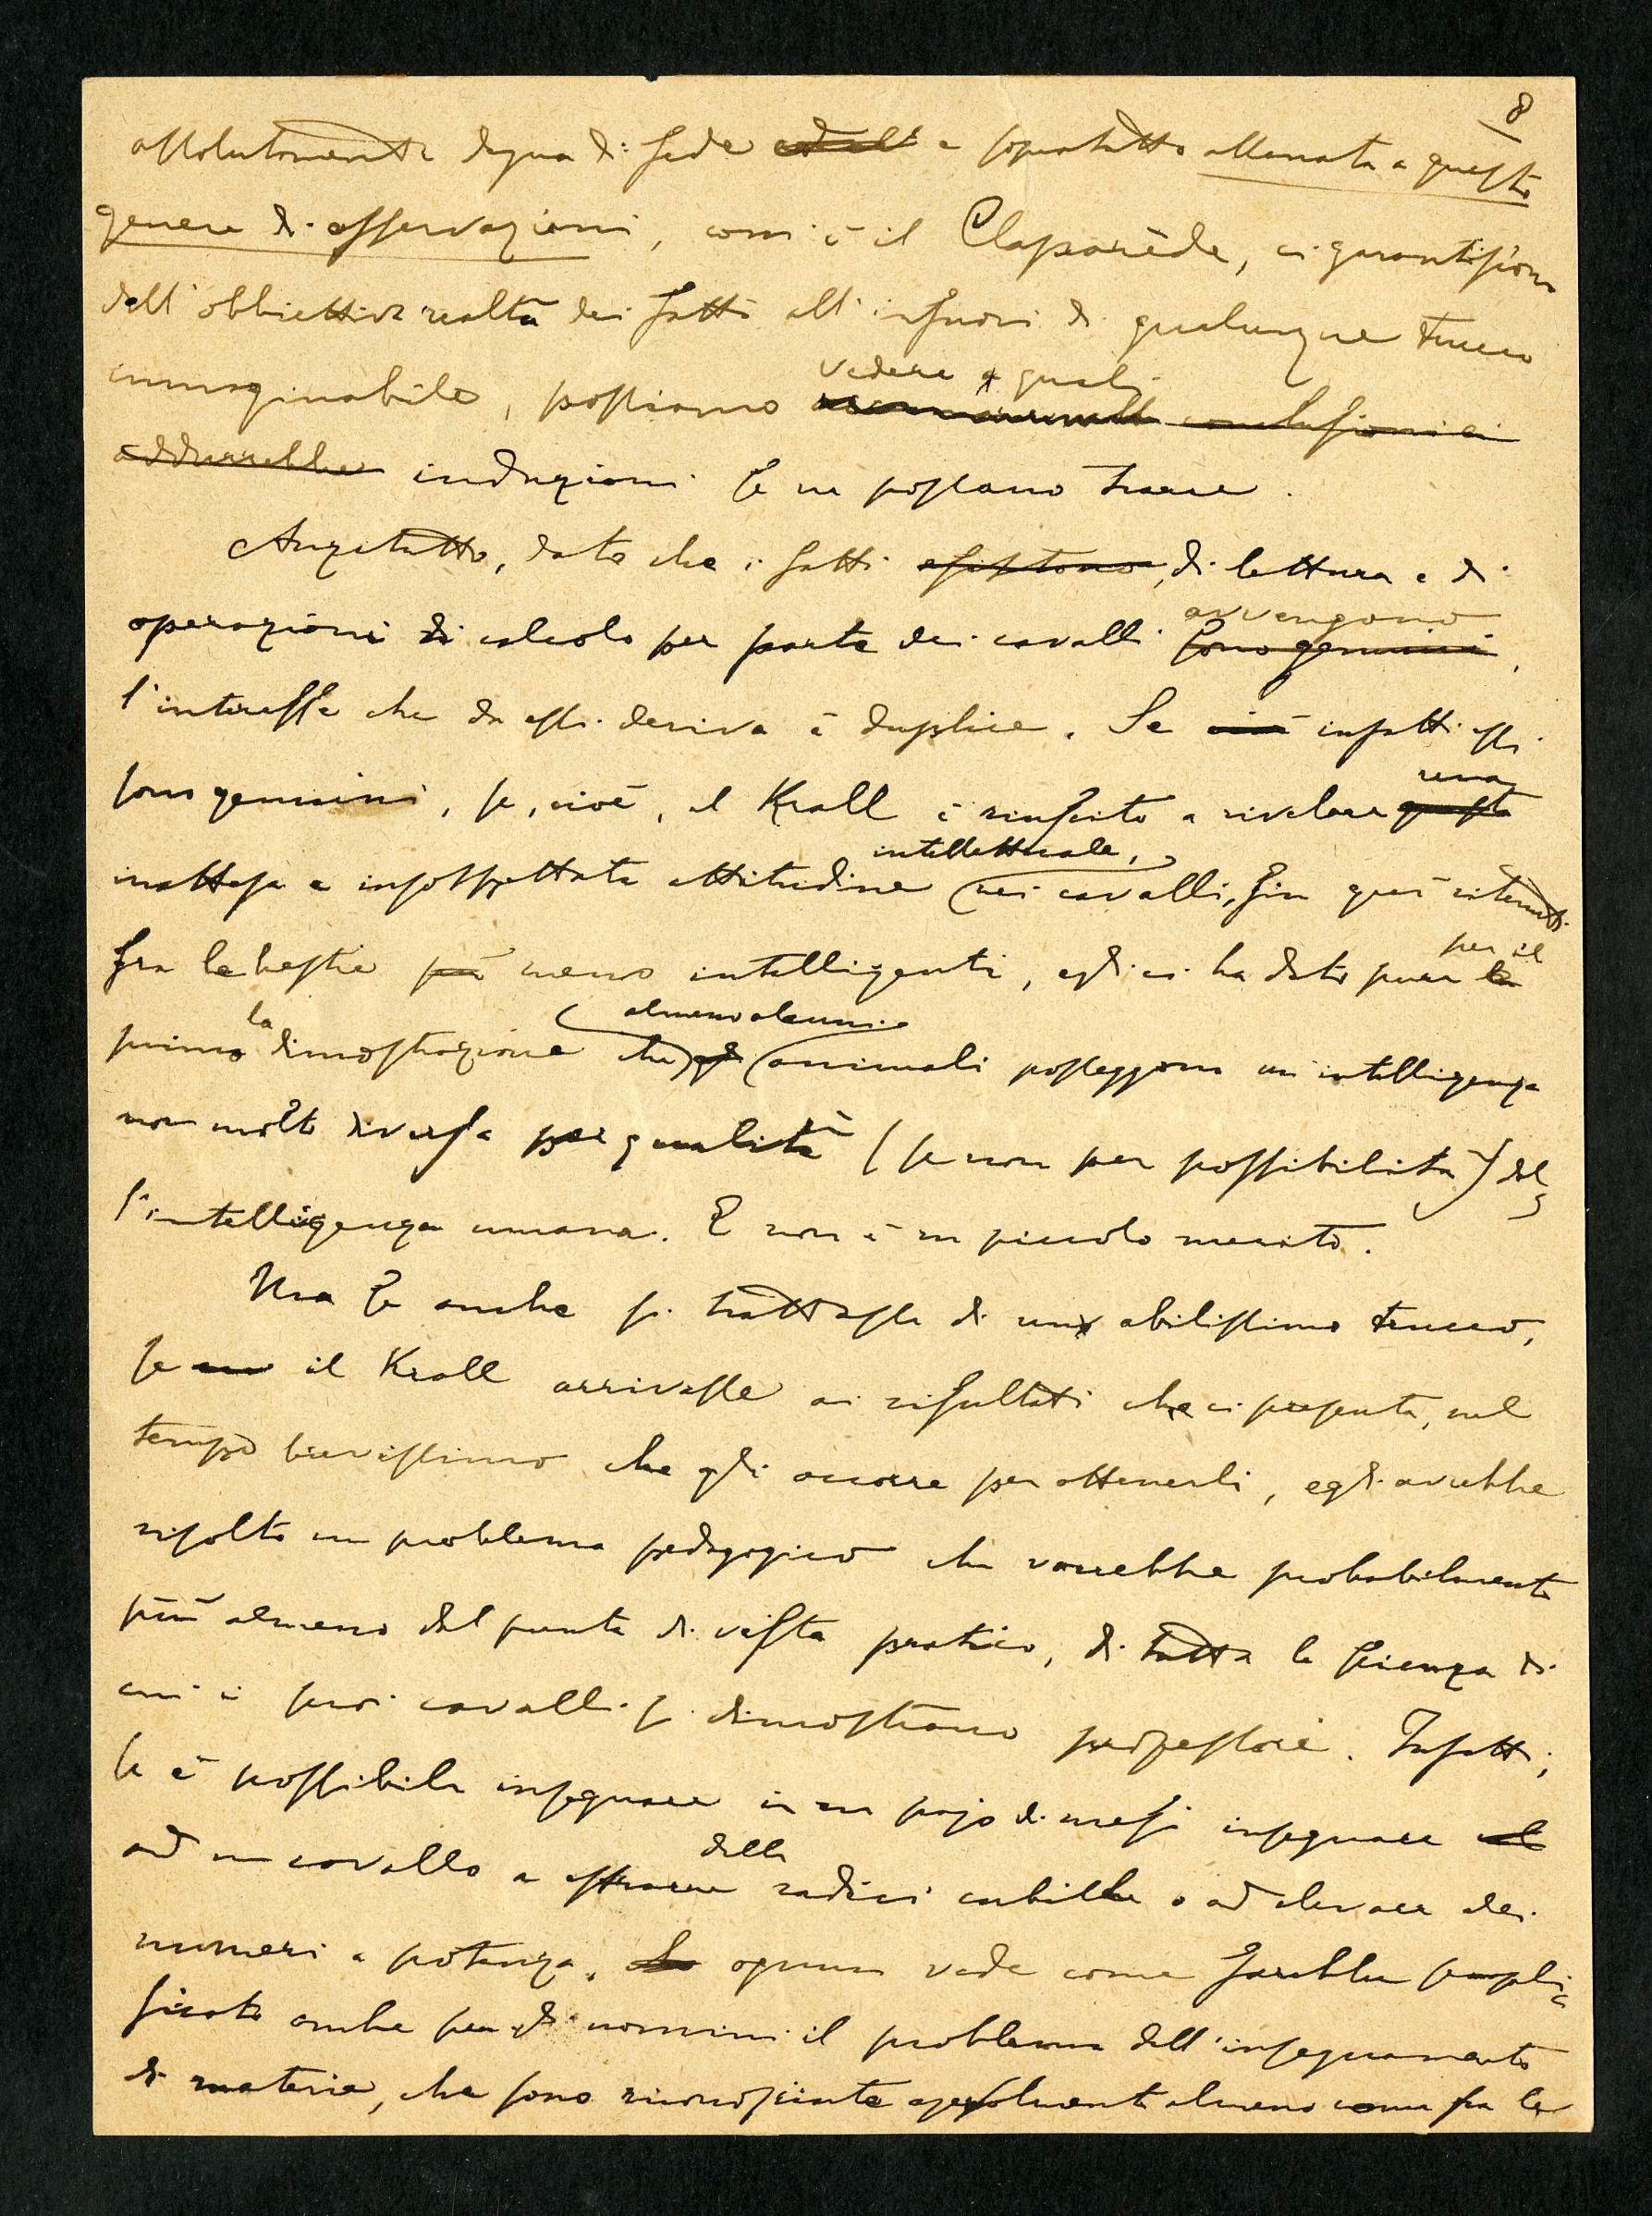 8
assolutamente degna di fede e sopratutto allenata a questo
genere di osservazioni, com'è il Claparède, ci garantiscono
dell'obbiettiva realtà dei fatti all'infuori di qualunque trucco
vedere quali
immaginabile, possiamo conclusioni ci
addurrebbe induzioni se ne possano trarre.
Anzitutto, dato che i fatti esistono, di lettura e di
avvengono
operazioni di calcolo per parte dei cavalli sono genuini,
l'interesse che da essi deriva è duplice. Se ciò infatti essi
una
sono genuini, se, cioè, il Krall è riuscito a rivelare questa
intellettuale,
inattesa e insospettata attitudine nei cavalli, fin quì ritenuti
per il
fra le bestie più meno intelligenti, egli ci ha dato pure la
la almeno alcuni
primo dimostrazione che gli animali posseggono un intelligenza
non molto diversa per qualità (se non per possibilità) del
l'intelligenza umana. E non è un piccolo merito.
Ma se anche si trattasse di un abilissimo trucco,
se il Krall arrivasse ai risultati che ci presenta, nel
tempo brevissimo che gli occorre per ottenerli, egli avrebbe
risolto un problema pedagogico che varrebbe probabilmente
più almeno dal punto di vista pratico, di tutta la scienza di
cui i suoi cavalli si dimostrano professori. Infatti,
se è possibile insegnare in un pajo di mesi insegnare al
delle
ad un cavallo a estrarre radici cubiche o ad elevare dei
numeri a potenza, ognun vede come sarebbe sempli
ficato anche per gli uomini il problema dell'insegnamento
di materie, che sono riconosciute almeno come fra le